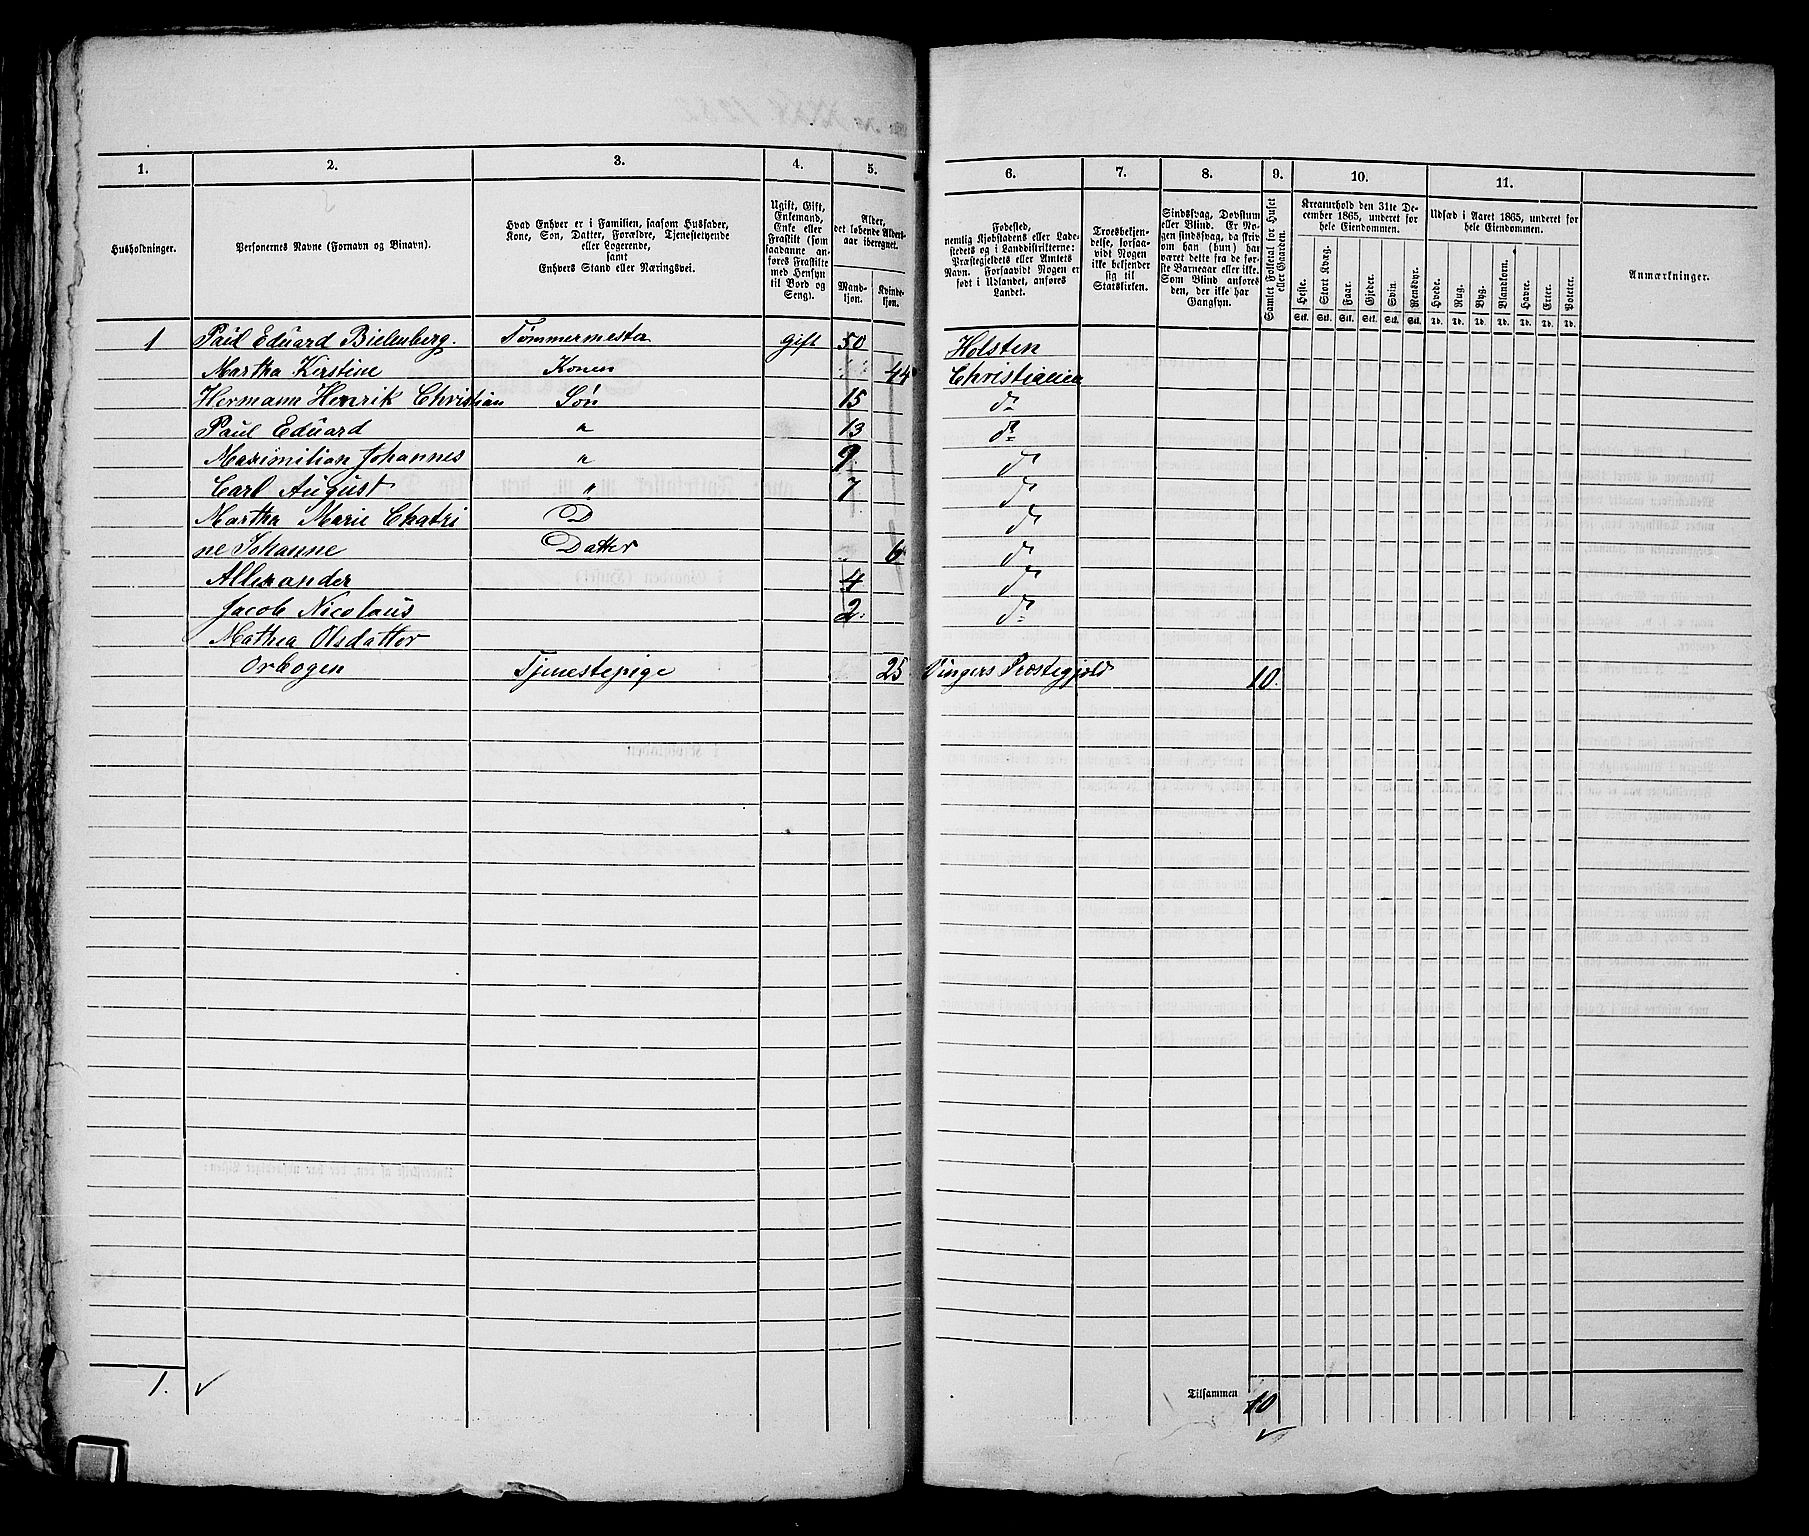 1.
2.
3.
4.
5.
6.
7.
8.
9.
10.
11.
Husholdninger.
Personernes Navne (Fornavn og Binavn).
Hvad Enhver er i Familien, saasom Husfader,
Kone, Søn, Datter, Forældre, Tjenestetyende
eller Logerende,
samt
Enhvers Stand eller Næringsvei.
Ugift, Gift,
Enkemand,
Enke eller
Fraskilt (som
saadanne an-
føres Fraskilte
med Hensyn
til Bord og
Seng).
Alder,
det løbende Alders-
aar iberegnet.
Mand-
kjøn.
Kvinde-
kjøn.
Fødested,
nemlig Kjøbstadens eller Lade-
stedets og i Landdistrikterne:
Præstegjeldets eller Amtets
Navn. Forsaavidt Nogen er
født i Udlandet, anføres
Landet.
Troesbekjen-
delse, forsaa-
vidt Nogen
ikke bekjender
sig til
Statskirken.
Sindssvag, Døvstum
eller Blind. Er No-
gen sindssvag, da skriv
om han (hun) har
været dette fra de før-
ste Barneaar eller ikke.
Som Blind anføres
den, der ikke har
Gangsyn.
Samlet Folketal for Huset
eller Gaarden.
Kreaturhold den 31te De-
cember 1865, underet for
hele Eiendommen.
Heste.
Stort Kvæg.
Faar.
Gjeder.
Svin.
Rensdyr.
Stk. Stk. Stk. Stk. Stk. Stk.
Udsæd i Aaret 1865, underet for
hele Eiendommen.
Hvede.
Rug.
Byg.
Blandkorn.
Havre.
Erter.
Poteter.
Td. Td. Td. Td. Td. Td. Td.
Anmærkninger.
1 Paul Eduard Bielenberg. Tømmermester Gift 50 Holsten
Martha Kirstine Konen 44 Christiania
Hermann Henrik Christian Søn 15 do
Paul Eduard " 13 do
Maximilian Johannes " 9 do
Carl August " 7 do
Martha Marie Chatri D do
ne Johanne Datter 6 do
Allexander 4 do
Jacob Nicolaus 2 do
Mathea Olsdatter
Orbogen Tjenestepige 25 Vingers Præstegjeld 10.
1. ✓
Tilsammen 10
✓